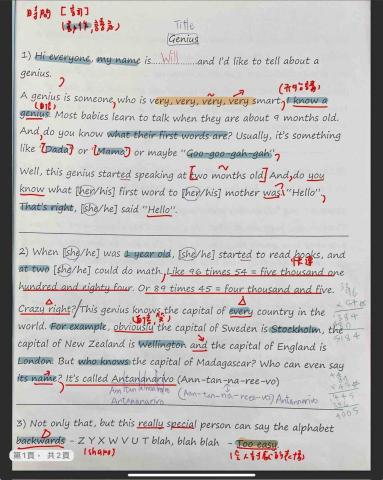 時間
Title
Genius
1) Hi everyone, my name is....Will....and I'd like to tell about a
genius.
A genius is someone, who is very, very, very, very smart, I know a
genius. Most babies learn to talk when they are about 9 months old.
And, do you know what their first words are? Usually, it's something
like "Dada" or "Mama" or maybe "Goo-goo-gah-gah",
Well, this genius started speaking at two months old! And, do you
know what [her/his] first word to [her/his] mother was? "Hello",
That's right, [she/he] said "Hello".
2) When [she/he] was 1 year old, [she/he] started to read books, and
快速
at two [she/he] could do math, Like 96 times 54 = five thousand one
hundred and eighty four. Or 89 times 45 = four thousand and five.
Crazy right? This genius knows the capital of every country in the
world. For example, obviously the capital of Sweden is Stockholm, the
capital of New Zealand is Wellington and the capital of England is
London. But who knows the capital of Madagascar? Who can even say
its name? It's called Antananarivo (Ann-tan-na-ree-vo)
(Ann-tan-na-ree-vo) Antananarivo
Antananarivo
3) Not only that, but this really special person can say the alphabet
backwards - Z Y X W V U T blah, blah blah - Too easy.
第1頁, 共2頁
(sharp)